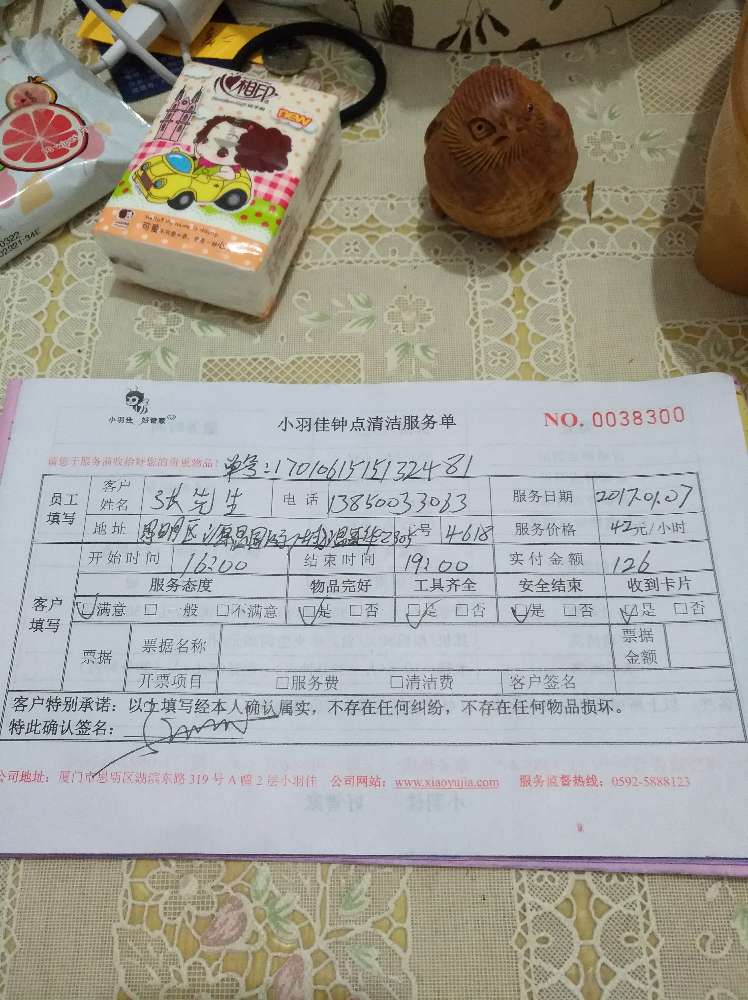 心相印
NEW
Hello! My name is
可蜜
小羽佳 好管家
小羽佳钟点清洁服务单
NO. 0038300
请您于服务前收拾好您的贵重物品!
单号:17010615151322481
员工填写 客户姓名 张先生 电话 13850033063 服务日期 2017.01.07
地址 号 4618 服务价格 42元/小时
客户填写 开始时间 16:00 结束时间 19:00 实付金额 126
服务态度 物品完好 工具齐全 安全结束 收到卡片
☑满意 □一般 □不满意 ☑是 □否 ☑是 □否 ☑是 □否 ☑是 □否
票据 票据名称 票据金额
开票项目 □服务费 □清洁费 客户签名
客户特别承诺:以上填写经本人确认属实,不存在任何纠纷,不存在任何物品损坏。
特此确认签名:
公司地址:厦门市思明区湖滨东路319号A幢2层小羽佳 公司网站:www.xiaoyujia.com 服务监督热线:0592-5888123